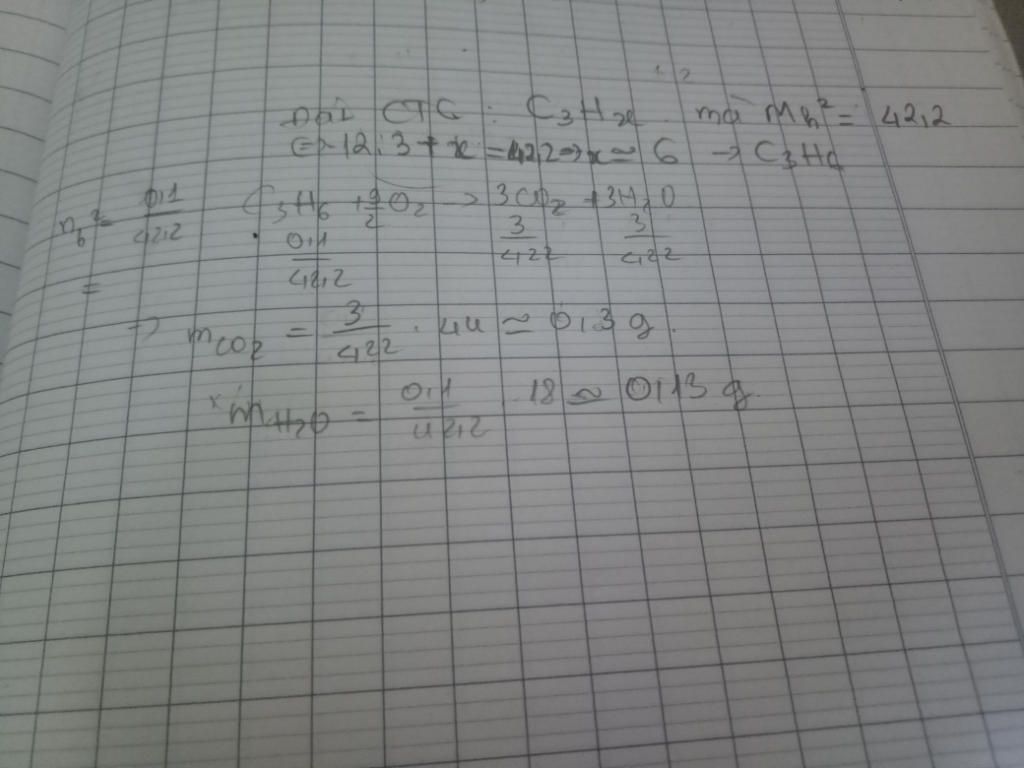 Đặt CTC : C₃Hₓ mà Mₕ² = 42,2
<=> 12.3 + x = 42,2 => x ≈ 6 → C₃H₆
nₕ² = 0,1/42,2 C₃H₆ + 9/2 O₂ → 3CO₂ + 3H₂O
= 0,1/42,2 3/422 3/422
→ mCO₂ = 3/422 . 44 ≈ 0,3 g.
* mH₂O = 0,1/42,2 . 18 ≈ 0,13 g.